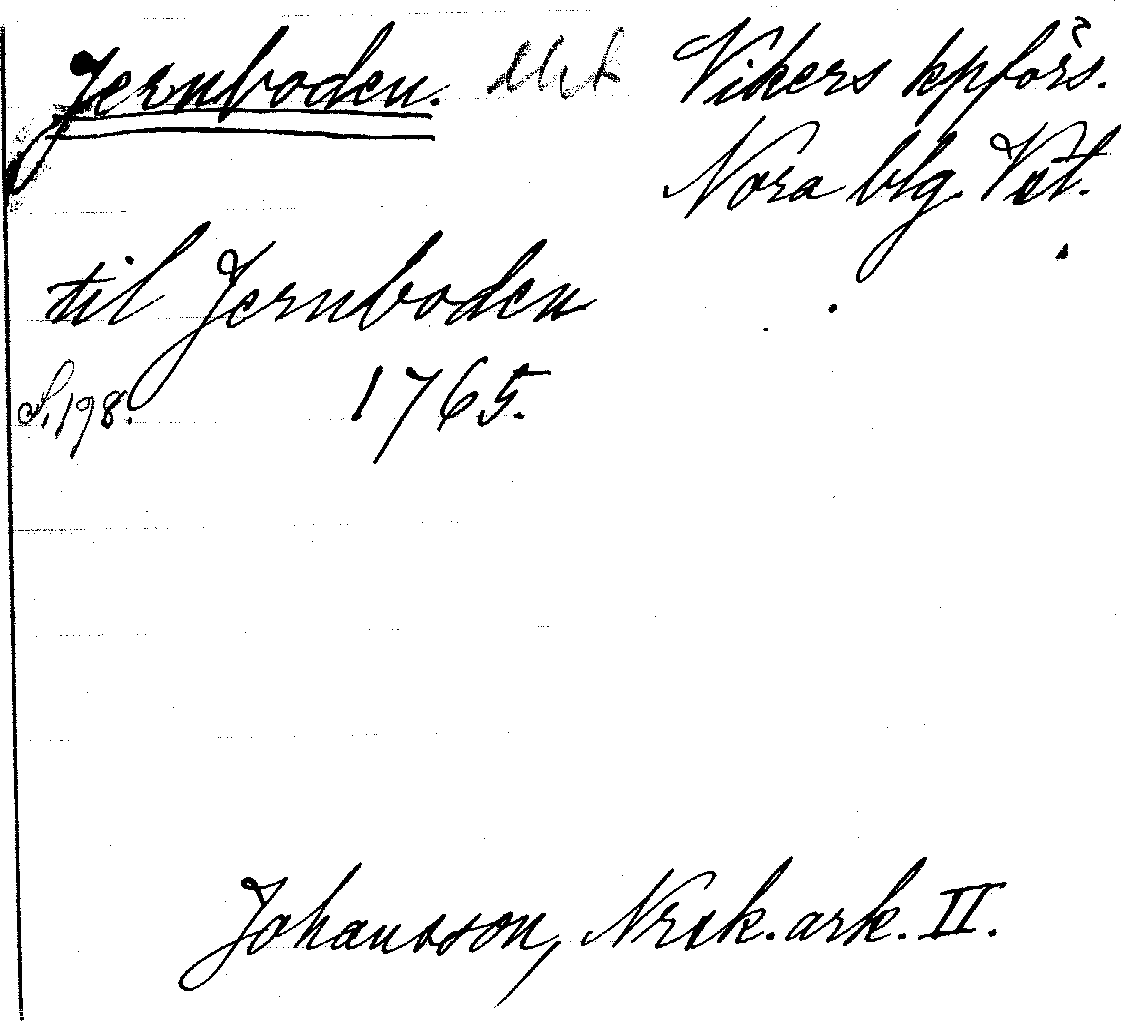 Jernboden. Vikers kpförs.
Nora blg. Vst.
til Jernboden
S. 198. 1765.
Johansson, Nrsk. ark. II.